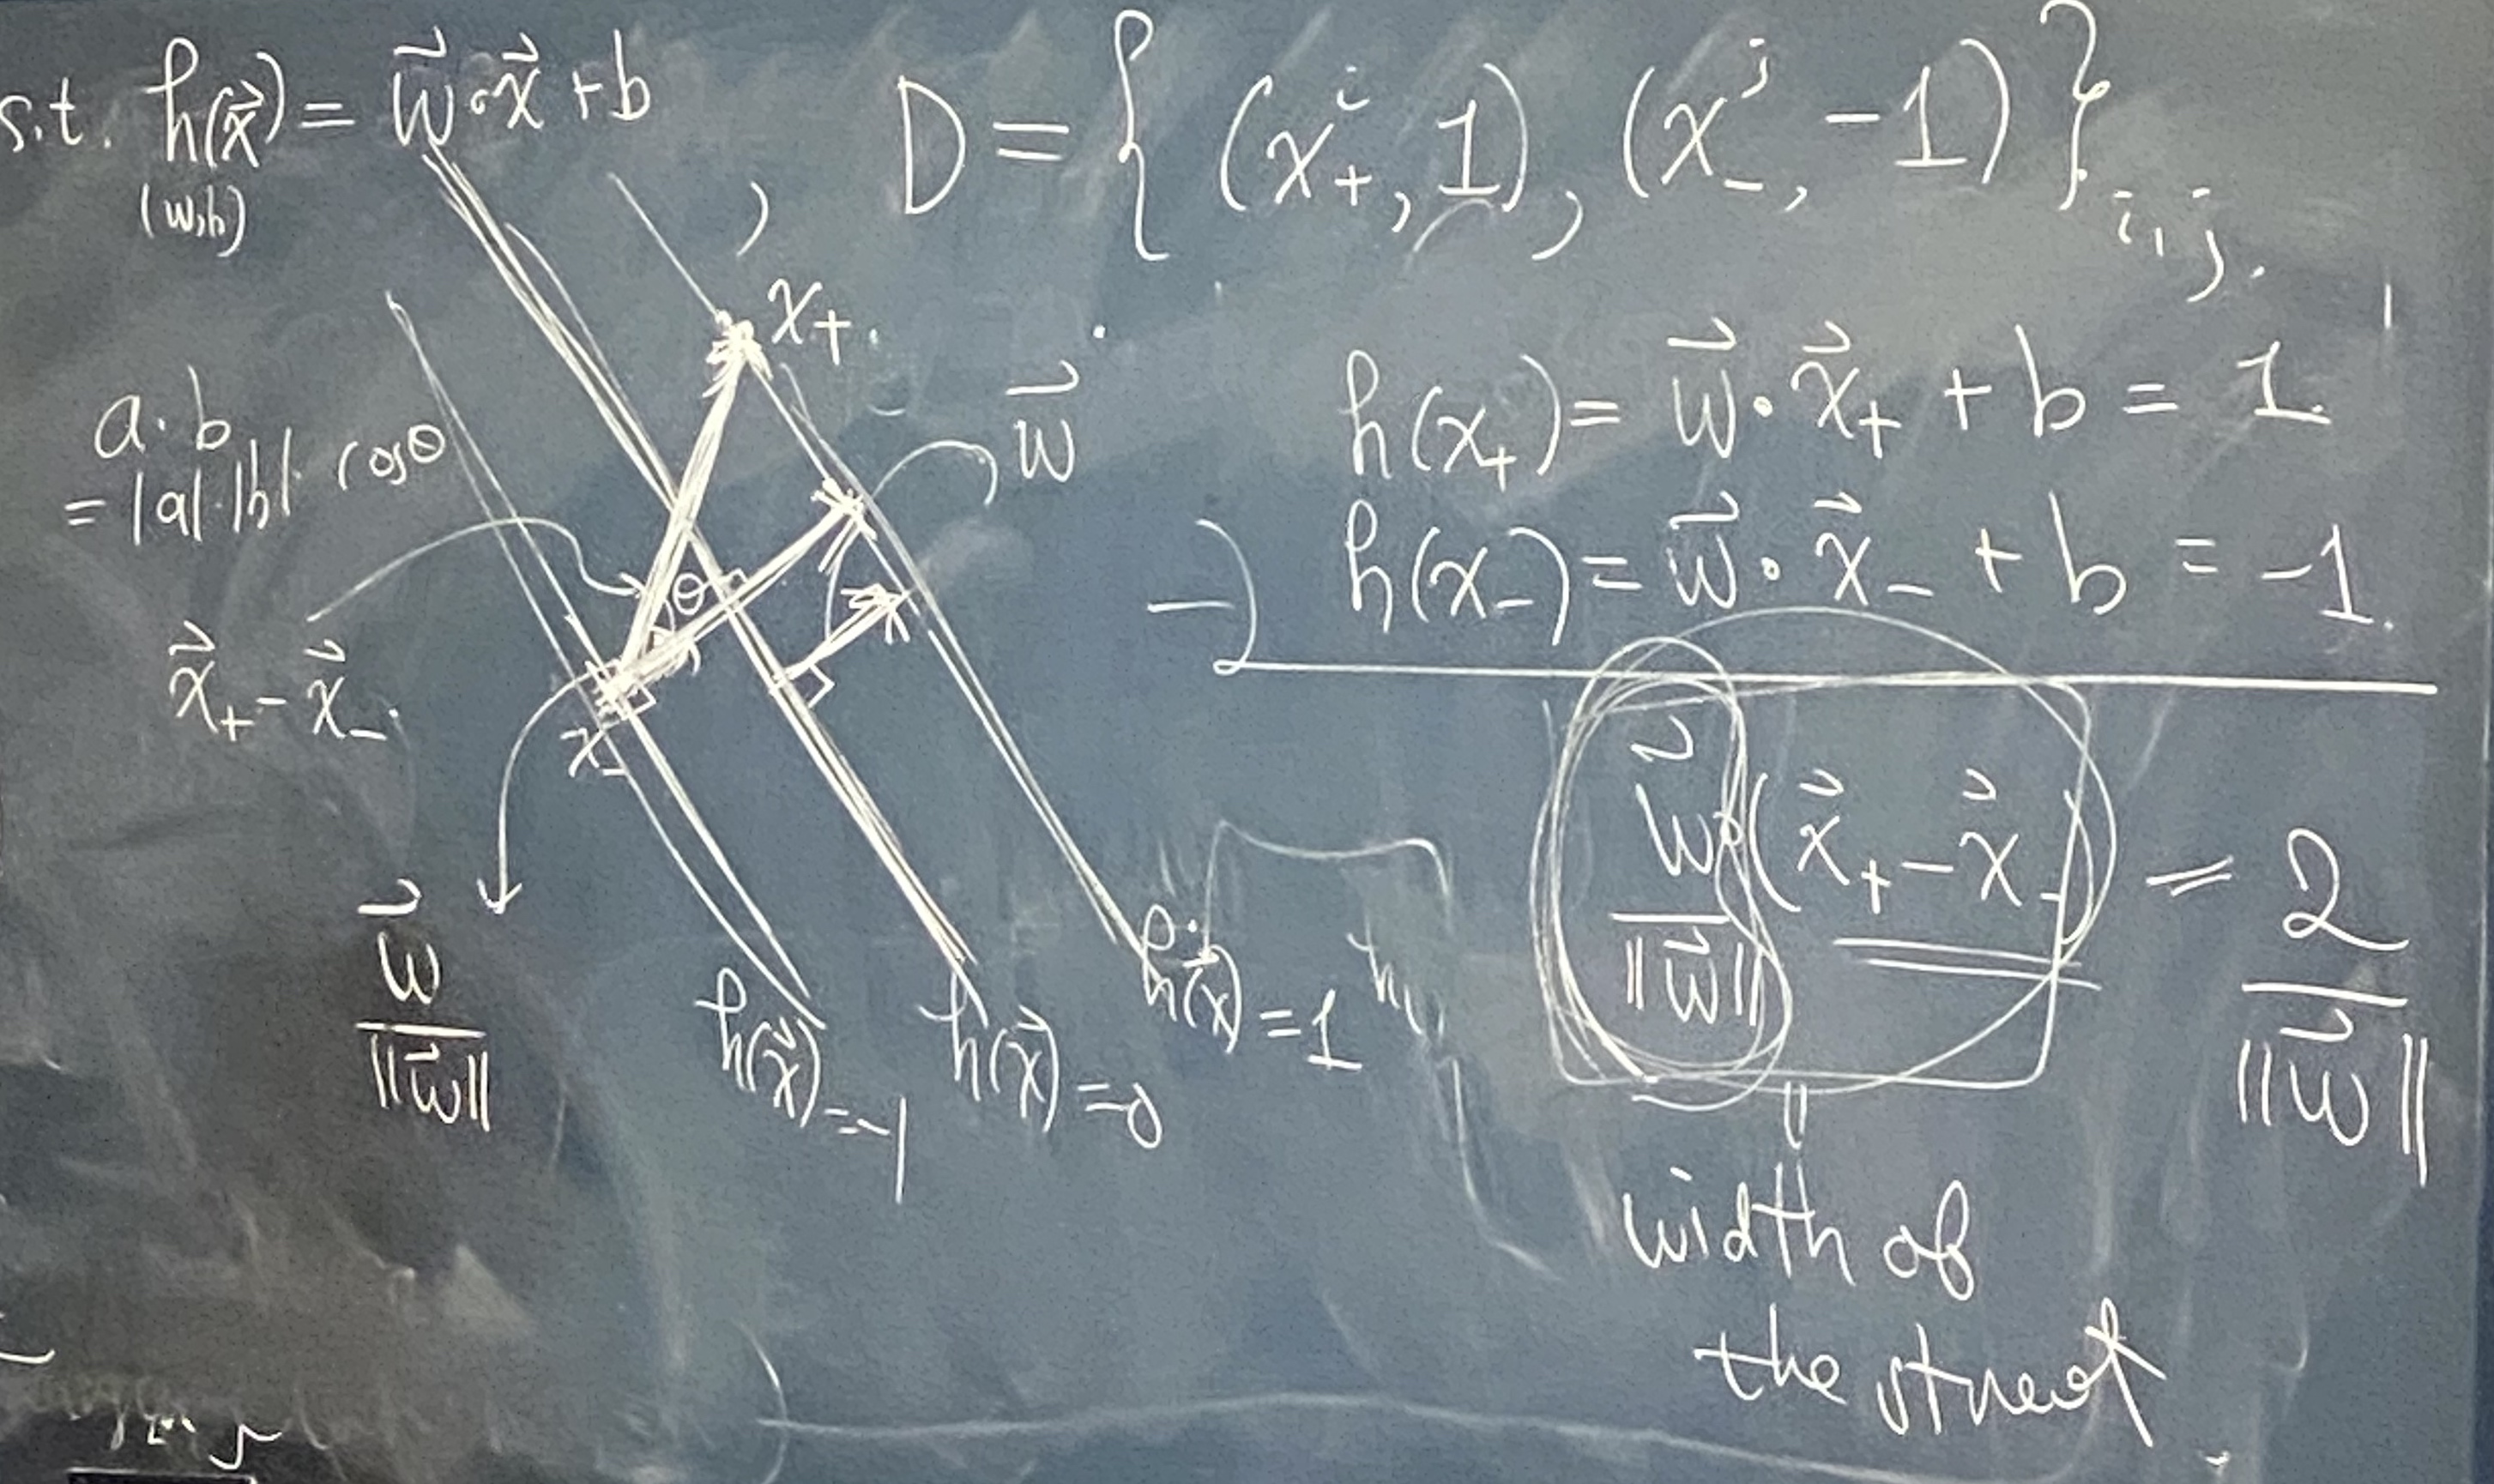 s.t. h(x⃗) = w⃗·x⃗ + b , D = { (x₊ⁱ, 1), (x₋ʲ, -1) }ᵢ,ⱼ.
(w,b)
x₊.
w⃗
a·b
= |a|·|b|·cosθ
θ
x⃗₊ - x⃗₋.
x₋
w⃗ / ||w⃗||
h(x⃗) = -1
h(x⃗) = 0
h(x⃗) = 1
h(x₊) = w⃗·x⃗₊ + b = 1.
-) h(x₋) = w⃗·x⃗₋ + b = -1.
w⃗ / ||w⃗|| · (x⃗₊ - x⃗₋) = 2 / ||w⃗||
||
width of
the street.